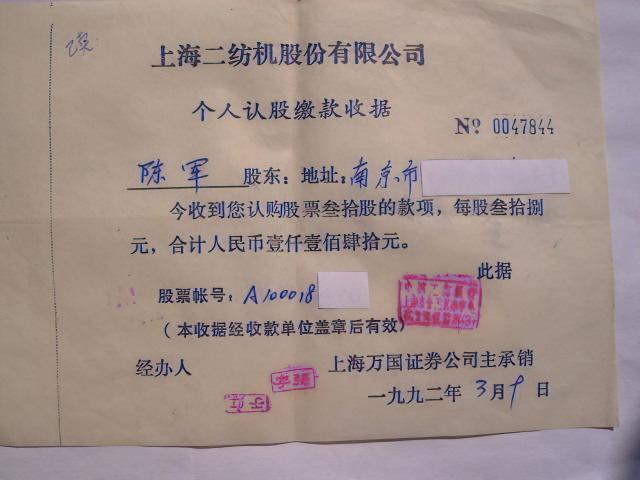 上海二纺机股份有限公司
个人认股缴款收据
Nº 0047844
陈军 股东：地址：南京市
今收到您认购股票叁拾股的款项，每股叁拾捌
元，合计人民币壹仟壹佰肆拾元。
此据
股票帐号：A100018
（本收据经收款单位盖章后有效）
经办人 上海万国证券公司主承销
一九九二年 3月9日